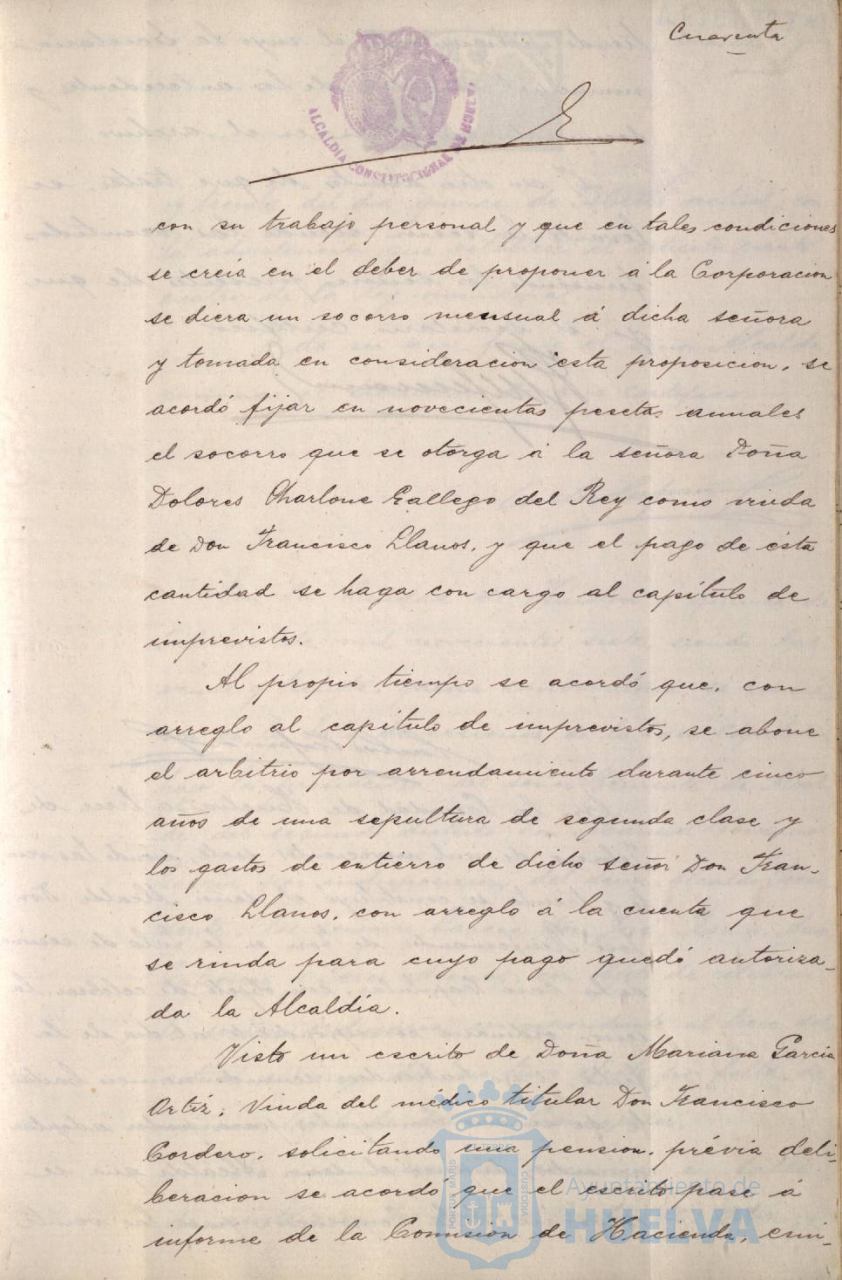 Cuarenta
ALCALDIA CONSTITUCIONAL DE HUELVA
con su trabajo personal y que en tales condiciones
se creia en el deber de proponer á la Corporacion
se diera un socorro mensual á dicha señora
y tomada en consideracion esta proposicion, se
acordó fijar en novecientas pesetas anuales
el socorro que se otorga á la señora Doña
Dolores Charlone Gallego del Rey como viuda
de Don Francisco Llanos, y que el pago de ésta
cantidad se haga con cargo al capítulo de
imprevistos.
Al propio tiempo se acordó que, con
arreglo al capítulo de imprevistos, se abone
el arbitrio por arrendamiento durante cinco
años de una sepultura de segunda clase y
los gastos de entierro de dicho señor Don Fran-
cisco Llanos, con arreglo á la cuenta que
se rinda para cuyo pago quedó autoriza-
da la Alcaldía.
Visto un escrito de Doña Mariana Garcia
Ortíz, Viuda del médico titular Don Francisco
Cordero, solicitando una pension, prévia deli-
beracion se acordó que el escrito pase á
informe de la Comisión de Hacienda, emi-
Ayuntamiento de
HUELVA